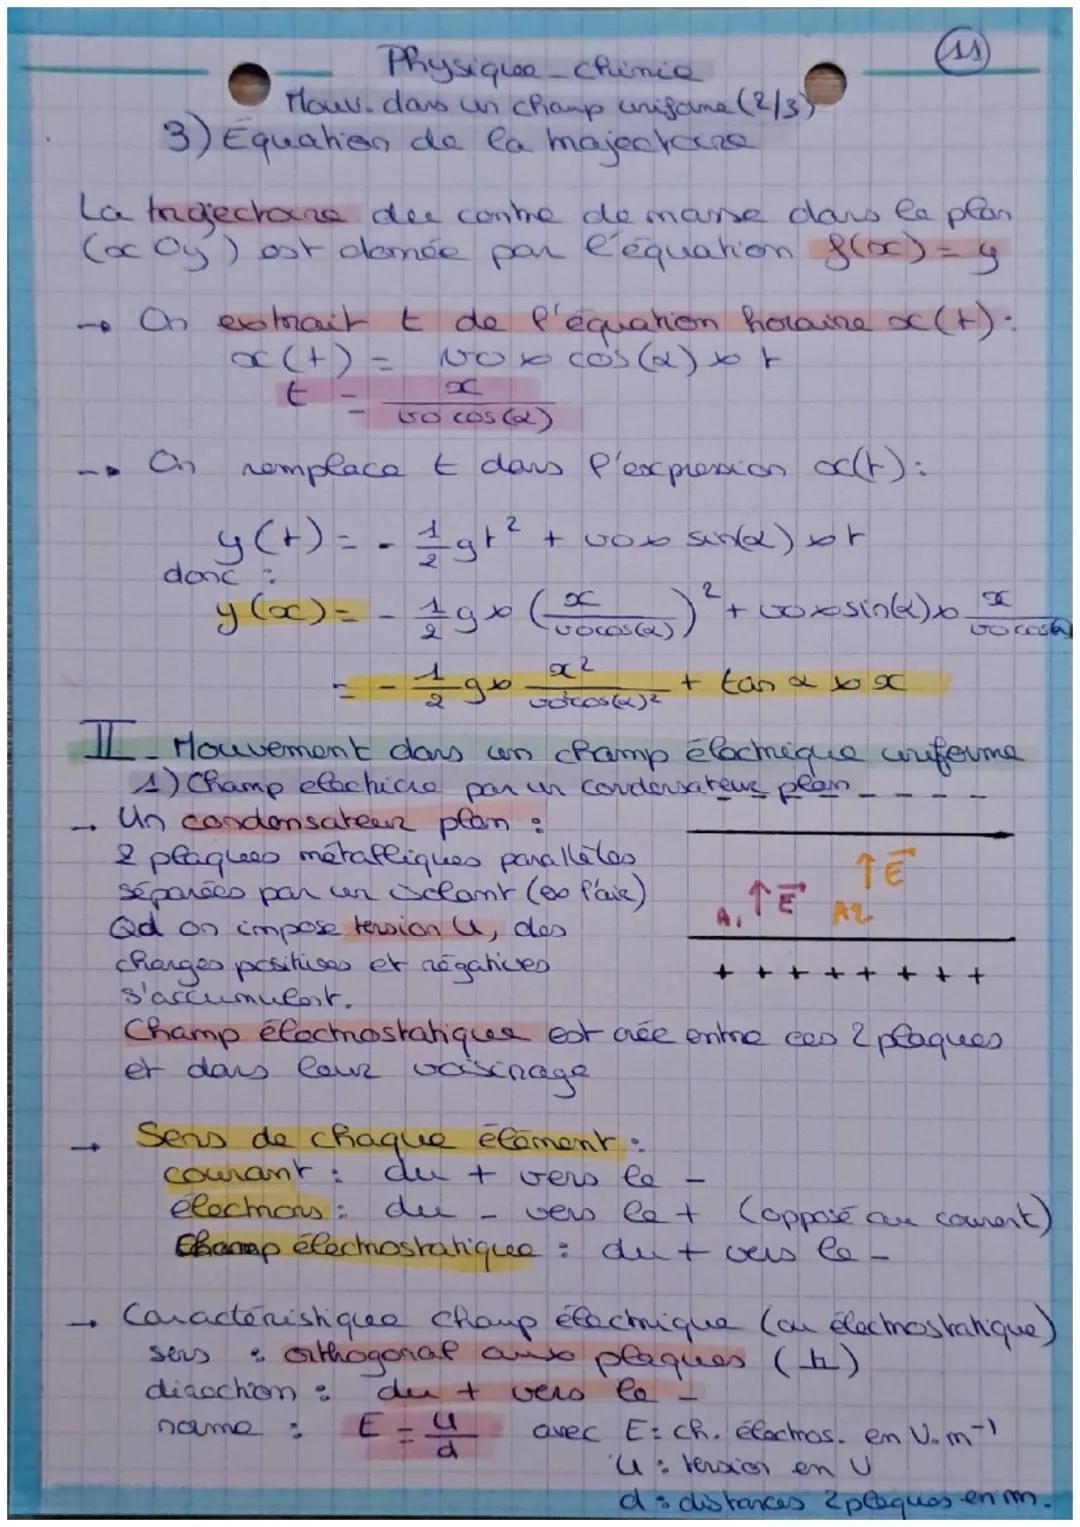 11
Physique-chimie
Mouv. dans un champ uniforme (2/3)
3) Équation de la trajectoire
La trajectoire du centre de masse dans le plan
(xOy) est donnée par l'équation f(x) = y
→ On extrait t de l'équation horaire x(t):
x(t) = v0 × cos(α) × t
t = x / (v0 cos(α))
→ On remplace t dans l'expression x(t):
y(t) = - 1/2 gt² + v0 × sin(α) × t
donc :
y(x) = - 1/2 g × (x / (v0cos(α)))² + v0 × sin(α) × x / (v0 cosα)
= - 1/2 g × x² / (v0²cos(α)²) + tan α × x
II - Mouvement dans un champ électrique uniforme
1) Champ électrique par un condensateur plan
- - - -
→ Un condensateur plan :
2 plaques métalliques parallèles
séparées par un isolant (ex l'air)
Qd on impose tension U, des
charges positives et négatives
s'accumulent.
↑E⃗
A1 ↑E⃗ A2
+ + + + + + + +
Champ électrostatique est crée entre ces 2 plaques
et dans leur voisinage
→ Sens de chaque élément :
courant : du + vers le -
électrons : du - vers le + (opposé au courant)
Champ électrostatique : du + vers le -
→ Caractéristique champ électrique (ou électrostatique)
sens : orthogonal aux plaques (⊥)
direction : du + vers le -
norme : E = U/d avec E: ch. électros. en V.m⁻¹
U : tension en V
d : distances 2 plaques en m.